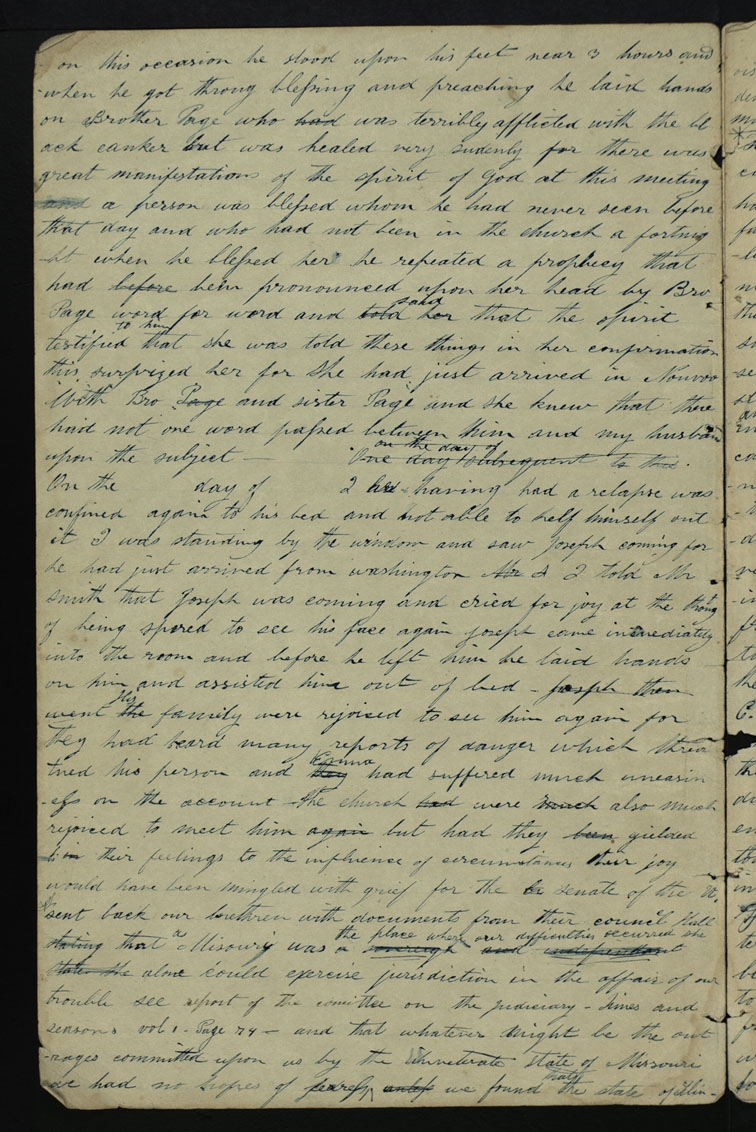 on this occasion he stood upon his feet near 3 hours and
when he got throug blessing and preaching he laid hands
on Brother Page who had was terribly afflicted with the bl
ack canker but was healed very sudenly for there was
great manifestations of the spirit of God at this meeting
and a person was blessed whom he had never seen before
that day and who had not been in the church a fortnig
-ht when he blessed her he repeated a prophecy that
had before bein pronounced upon her head by Bro
Page word for word and told said her that the spirit
testified to him that she was told these things in her confirmation
this surprized her for she had just arrived in Nouvoo
With Bro Page and sister Page and she knew that there
had not one word passed between him and my husban
upon the subject — One day on the day of subsequent to this.
On the day of 2 having had a relapse was
confined again to his bed and not able to help himself out
it I was standing by the window and saw Joseph coming for
he had just arrived from washington I told Mr
smith that Joseph was coming and cried for joy at the thoug
of being spared to see his face again Joseph came immediately
into the room and before he left him he laid hands
on him and assisted him out of bed - Joseph then
went His the family were rejoiced to see him again for
they had heard many reports of danger which threa
tned his person and they Emma had suffered much uneasin
-ess on the account the church had were much also much
rejoiced to meet him again but had they been yielded
him their feelings to the influence of circumstances their joy
would have been mingled with grief for the senate of the U.
sent back our brethren with documents from their council Hall
stating that a Missoury was a the place where our difficulties occurred she
sovreign and independant
state she alone could exercise jurisdiction in the affair of our
trouble see report of the comittee on the judiciary - Times and
seasons vol 1 - Page 74 — and that whatever might be the out
-rages committed upon us by the state of Missouri
we had no hopes of we found that the state of Illin-